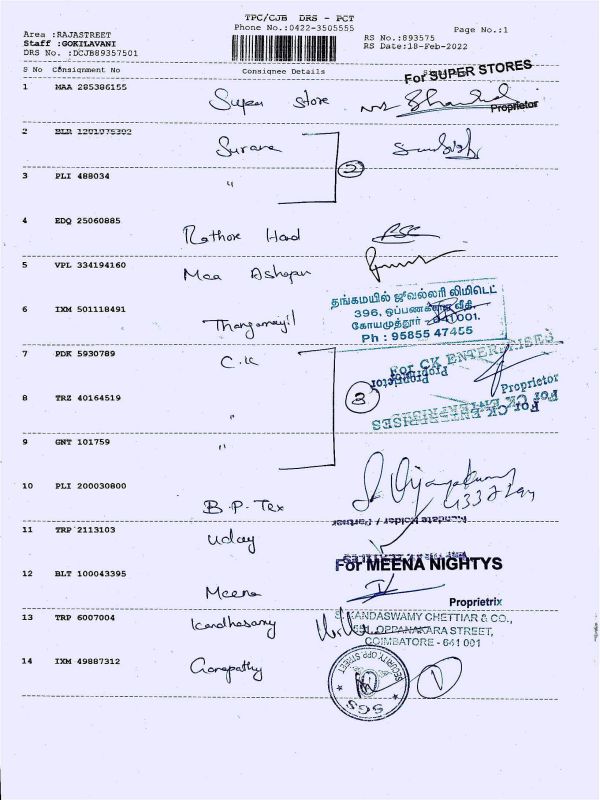 TPC/CJB DRS - PCT
Phone No.:0422-3505555
Page No.:1
Area :RAJASTREET
Staff :GOKILAVANI
DRS No. :DCJB89357501
RS No.:893575
RS Date:18-Feb-2022
S No Consignment No Consignee Details
For SUPER STORES
1 MAA 285386155 Super Store
Proprietor
2 BLR 1201975302 Surana
2
3 PLI 488034 "
4 EDQ 25060885 Rathore Hard
5 VPL 334194160 Maa Ashapuri
6 IXM 501118491 Thangamayil
தங்கமயில் ஜீவல்லரி லிமிடெட்
396, ஒப்பணக்கார வீதி,
கோயமுத்தூர் - 641001.
Ph : 95855 47455
7 PDK 5930789 C.K
For CK ENTERPRISES
Proprietor
Proprietor
8 TRZ 40164519 "
3
For CK ENTERPRISES
9 GNT 101759 "
10 PLI 200030800 B.P-Tex
Mandate Holder / Partner
11 TRP 2113103 Uday
For MEENA NIGHTYS
12 BLT 100043395 Meena
Proprietrix
13 TRP 6007004 Kandhasamy
S. KANDASWAMY CHETTIAR & CO.,
551, OPPANAKARA STREET,
COIMBATORE - 641 001
14 IXM 49887312 Ganapathy
SECURITY OPP STREET
SGS
1